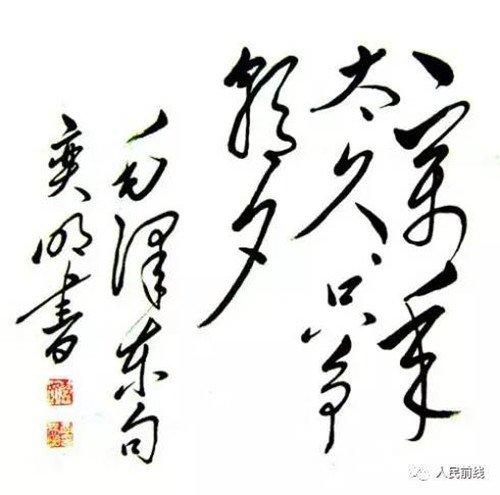 一萬年
太久只争
朝夕
毛澤东句
奕明書
人民前线